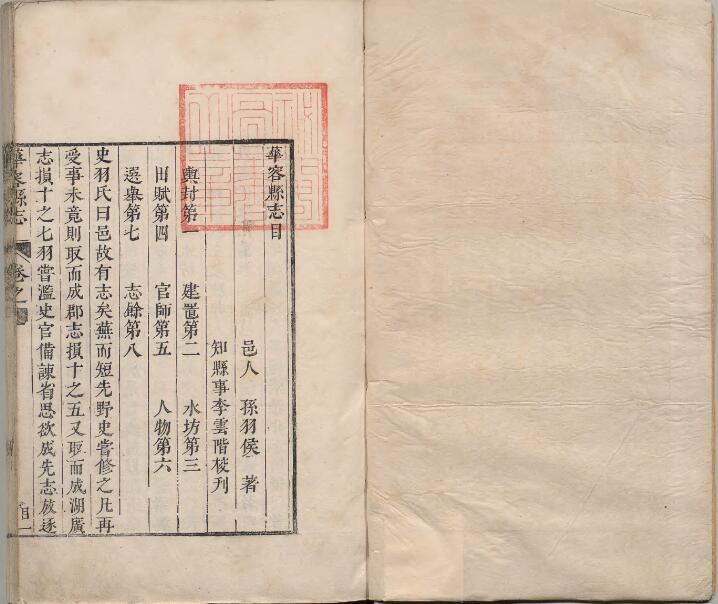 華容縣志目
邑人 孫羽侯 著
知縣事李雲階梓刊
輿封第一 建置第二 水坊第三
田賦第四 官師第五 人物第六
選舉第七 志餘第八
史羽氏曰邑故有志矣蕪而短先野史嘗修之凡再
受事未竟則取而成郡志損十之五又取而成湖廣
志損十之七羽嘗濫史官備諫省思欲成先志放逐
華容縣志 卷之一 目一